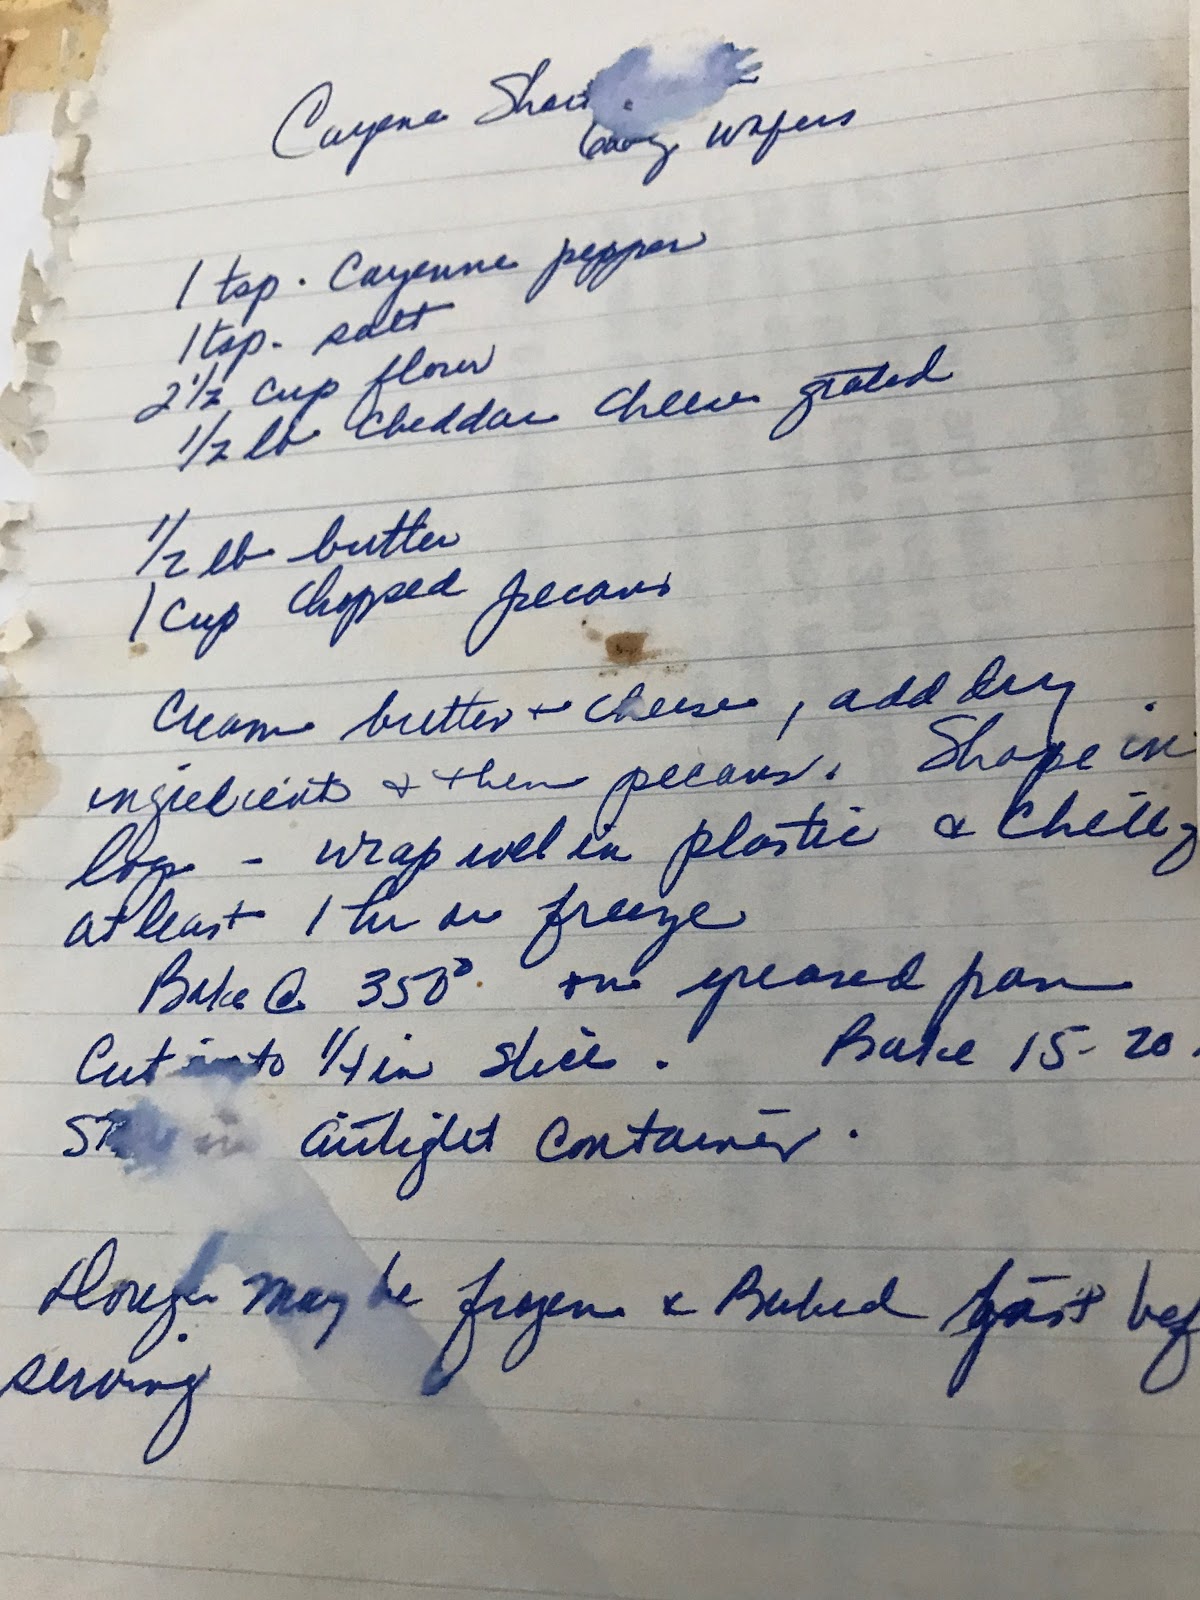 Cayene
wafers
1 tsp. Cayenne pepper
1 tsp. salt
2 1/2 cup flour
1/2 lb Cheddar Cheese grated
1/2 lb butter
1 Cup Chopped pecans
Cream butter + cheese, add dry
ingredients & then pecans. Shape in
logs - wrap well in plastic & Chill
at least 1 hr or freeze
Bake @ 350° on greased pan
Cut into 1/4 in slice. Bake 15-20
in airtight Container.
may be frozen & Baked just bef
serving